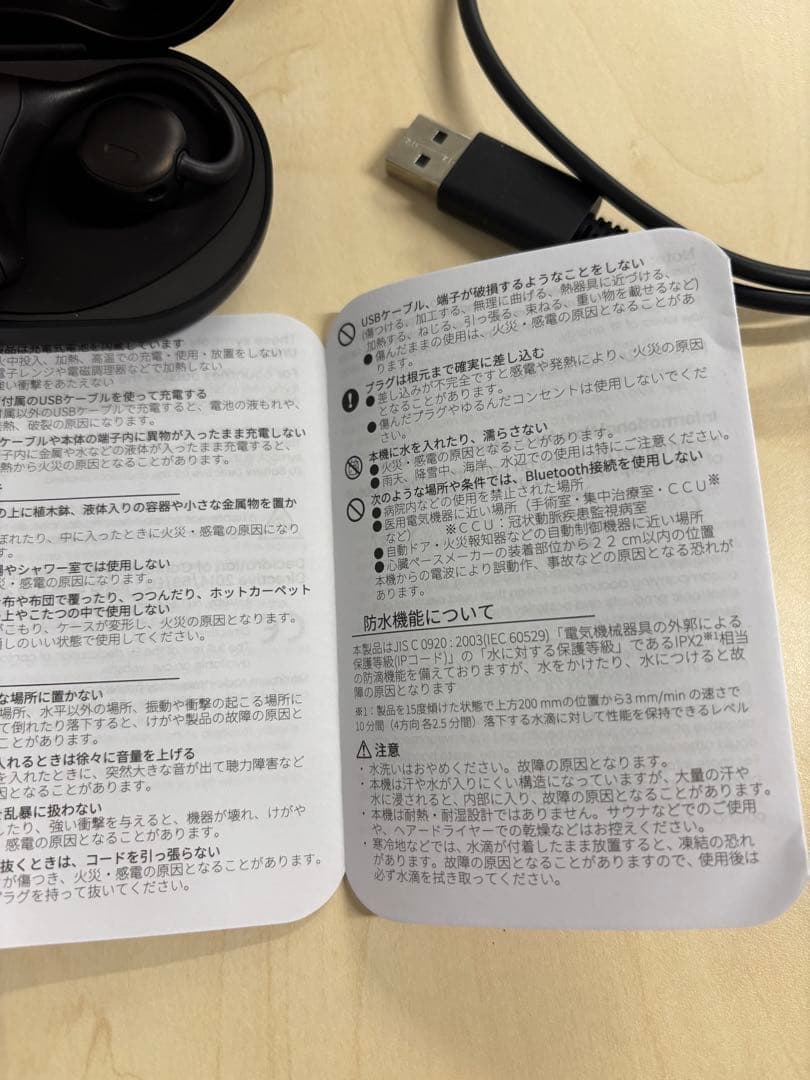 電池を内蔵しています
火中投入、加熱、高温での充電・使用・放置をしない
電子レンジや電磁調理器などで加熱しない
強い衝撃をあたえない
付属のUSBケーブルを使って充電する
付属以外のUSBケーブルで充電すると、電池の液もれや、
発熱、破裂の原因になります。
ケーブルや本体の端子内に異物が入ったまま充電しない
子内に金属や水などの液体が入ったまま充電すると、
熱から火災の原因となることがあります。
の上に植木鉢、液体入りの容器や小さな金属物を置か
ぼれたり、中に入ったときに火災・感電の原因になり
す。
場やシャワー室では使用しない
災・感電の原因になります。
布や布団で覆ったり、つつんだり、ホットカーペット
の上やこたつの中で使用しない
がこもり、ケースが変形し、火災の原因となります。
通しのいい状態で使用してください。
な場所に置かない
場所、水平以外の場所、振動や衝撃の起こる場所に
て倒れたり落下すると、けがや製品の故障の原因と
ことがあります。
入れるときは徐々に音量を上げる
を入れたときに、突然大きな音が出て聴力障害など
因となることがあります。
を乱暴に扱わない
したり、強い衝撃を与えると、機器が壊れ、けがや
感電の原因となることがあります。
抜くときは、コードを引っ張らない
が傷つき、火災・感電の原因となることがあります。
プラグを持って抜いてください。
USBケーブル、端子が破損するようなことをしない
(傷つける、加工する、無理に曲げる、熱器具に近づける、
加熱する、ねじる、引っ張る、束ねる、重い物を載せるなど)
●傷んだままの使用は、火災・感電の原因となることがあ
ります。
プラグは根元まで確実に差し込む
●差し込みが不完全ですと感電や発熱により、火災の原因
となることがあります。
●傷んだプラグやゆるんだコンセントは使用しないでくだ
さい。
本機に水を入れたり、濡らさない
●火災・感電の原因となることがあります。
●雨天、降雪中、海岸、水辺での使用は特にご注意ください。
次のような場所や条件では、Bluetooth接続を使用しない
●病院内などの使用を禁止された場所
●医用電気機器に近い場所（手術室・集中治療室・ＣＣＵ※
など） ※ＣＣＵ：冠状動脈疾患監視病室
●自動ドア・火災報知器などの自動制御機器に近い場所
●心臓ペースメーカーの装着部位から２２ cm以内の位置
本機からの電波により誤動作、事故などの原因となる恐れが
あります。
防水機能について
本製品はJIS C 0920 : 2003(IEC 60529)「電気機械器具の外郭による
保護等級(IPコード)」の「水に対する保護等級」であるIPX2※1相当
の防滴機能を備えておりますが、水をかけたり、水につけると故
障の原因となります
※1：製品を15度傾けた状態で上方200 mmの位置から3 mm/min の速さで
10分間（4方向 各2.5 分間）落下する水滴に対して性能を保持できるレベル
注意
・水洗いはおやめください。故障の原因となります。
・本機は汗や水が入りにくい構造になっていますが、大量の汗や
水に浸されると、内部に入り、故障の原因となることがあります。
・本機は耐熱・耐湿設計ではありません。サウナなどでのご使用
や、ヘアードライヤーでの乾燥などはお控えください。
・寒冷地などでは、水滴が付着したまま放置すると、凍結の恐れ
があります。故障の原因となることがありますので、使用後は
必ず水滴を拭き取ってください。